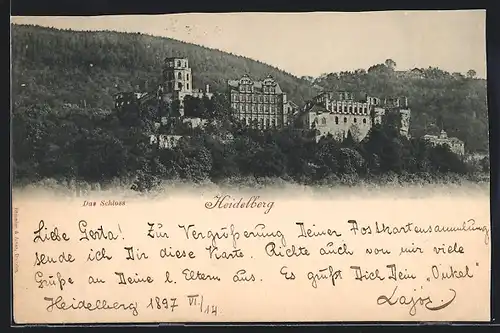 Das Schloss
Heidelberg
Liebe Gerta! Zur Vergrößerung Deiner Postkartensammlung
sende ich Dir diese Karte. Richte auch von mir viele
Grüße an Deine l. Eltern aus. Es grüßt Dich Dein „Onkel"
Heidelberg 1897 VI/14. Lajos.